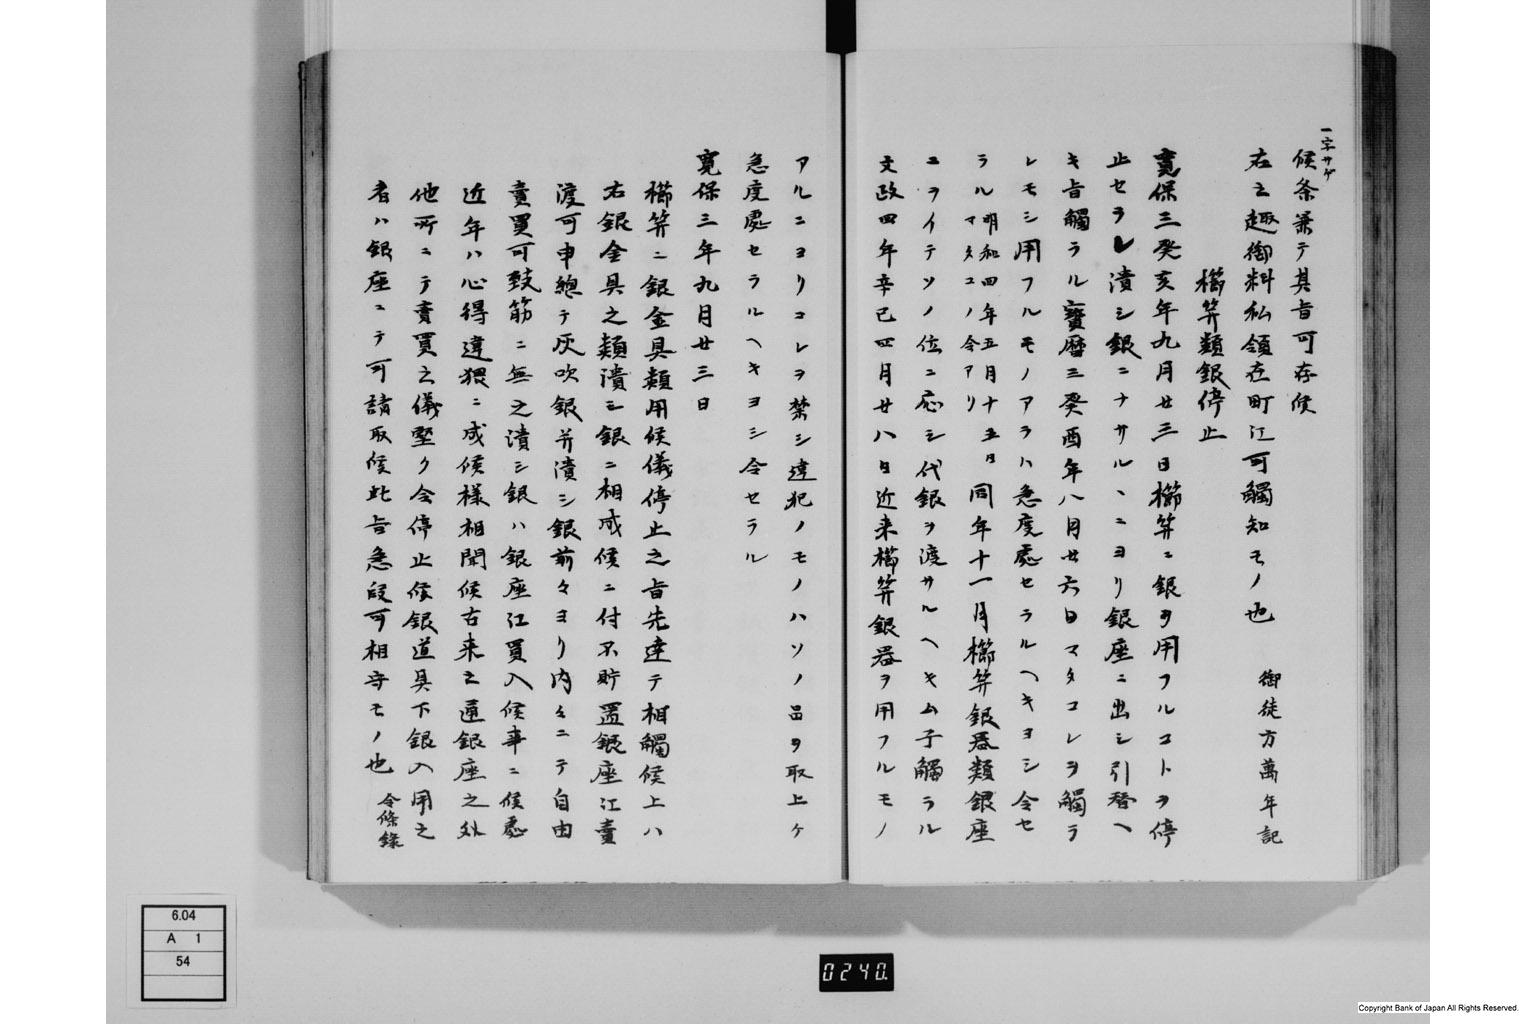 一字サゲ
候条兼テ其旨可存候
右之趣御料私領在町江可觸知モノ也　御徒方萬年記
櫛筓類銀停止
寛保三癸亥年九月廿三日櫛筓ニ銀ヲ用フルコトヲ停
止セラレ潰シ銀ニナサルヽニヨリ銀座ニ出シ引替ヘ
キ旨觸ラル寶暦三癸酉年八月廿六日マタコレヲ觸ラ
レモシ用フルモノアラハ急度處セラルヘキヨシ令セ
ラル明和四年五月十五日マタコノ令アリ同年十一月櫛筓銀器類銀座
ニヲイテソノ位ニ応シ代銀ヲ渡サルヘキム子觸ラル
文政四年辛巳四月廿八日近来櫛筓銀器ヲ用フルモノ
アルニヨリコレヲ禁シ違犯ノモノハソノ品ヲ取上ケ
急度處セラルヘキヨシ令セラル
寛保三年九月廿三日
櫛筓ニ銀金具類用候儀停止之旨先達テ相觸候上ハ
右銀金具之類潰シ銀ニ相成候ニ付不貯置銀座江賣
渡可申總テ灰吹銀并潰シ銀前々ヨリ内々ニテ自由
賣買可致筋ニ無之潰シ銀ハ銀座江買入候事ニ候處
近年ハ心得違猥ニ成候様相聞候古来之通銀座之外
他所ニテ賣買之儀堅ク令停止候銀道具下銀入用之
者ハ銀座ニテ可請取候此旨急度可相守モノ也　令條錄
6.04
A 1
54
0240.
Copyright Bank of Japan All Rights Reserved.